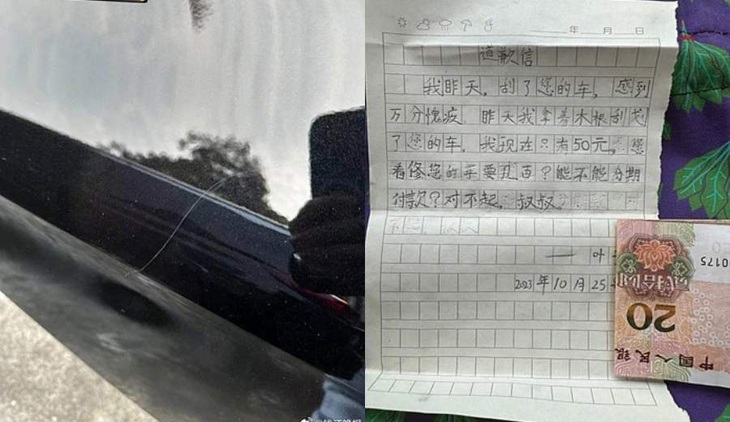 年 月 日
道歉信
我昨天，刮了您的车，感到
万分愧疚 昨天我拿着木棍刮
了您的车，我现在只有50元，您
看修您的车要几百？能不能分期
付款？对不起，叔叔。
一叶
2023年10月25
0175
20
中国人民银